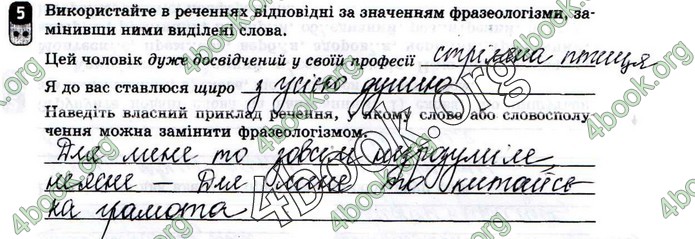 5 Використайте в реченнях відповідні за значенням фразеологізми, за-
мінивши ними виділені слова.
Цей чоловік дуже досвідчений у своїй професії стріляна птиця
Я до вас ставлюся щиро з усією душею
Наведіть власний приклад речення, у якому слово або словосполу
чення можна замінити фразеологізмом.
Для мене то зовсім
неясне – Для мене то китайсь
ка грамота
4book.org